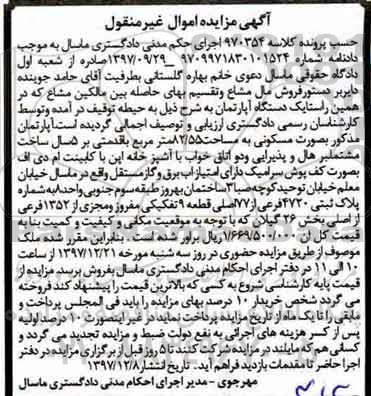 آگهی مزایده اموال غیر منقول
حسب پرونده کلاسه ۹۷۰۳۵۴ اجرای حکم مدنی دادگستری ماسال به موجب
دادنامه شماره ۹۷۰۹۹۷۱۸۳۰۱۰۱۵۲۴ _ ۱۳۹۷/۰۹/۲۹صادره از شعبه اول
دادگاه حقوقی ماسال دعوی خانم بهاره گلستانی بطرفیت آقای حامد جوینده
دایربر دستورفروش مال مشاع وتقسیم بهای حاصله بین مالکین مشاع که در
همین راستایک دستگاه آپارتمان به شرح ذیل به حیطه توقیف در آمده وتوسط
کارشناسان رسمی دادگستری ارزیابی و توصیف اجمالی گردیده است.آپارتمان
مذکور بصورت مسکونی به مساحت۸۲/۵۵متر مربع باقدمتی بر ۵سال ساخت
مشتملبر هال و پذیرایی ودو اتاق خواب با آشپز خانه اپن با کابینت ام دی اف
بصورت کف پوش سرامیک دارای امتیازاب برق وگازمستقل واقع در ماسال خیابان
معلم خیابان توحیدکوچه صبا۳ساختمان بهروزطبقه سوم جنوبی واحد۸به شماره
پلاک ثبتی ۴۷۲۰فرعی از۷۷اصلی قطعه ۹تفکیکی مفروز ومجزی از ۱۳۵۲فرعی
از اصلی بخش ۲۶ گیلان که با توجه به موقعیت مکانی و کیفیت و کمیت بنابه
قیمت کل ان ۱/۶۶۹/۵۰۰/۰۰۰ریال براور شده است . بنابراین مقرر شده ملک
موصوف از طریق مزایده حضوری در روز سه شنبه مورخه ۱۳۹۷/۱۲/۲۱ از ساعت
۱۰ الی ۱۱ در دفتر اجرای احکام مدنی دادگستری ماسال بفروش برسد مزایده از
قیمت پایه کارشناسی شروع به کسی که بالاترین قیمت را پیشنهاد کند فروخته
می گردد شخص خریدار ۱۰ درصد بهای مزایده را باید فی المجلس پرداخت و
مابقی را تا یک ماه از تاریخ مزایده پرداخت نماید در غیر اینصورت ۱۰ درصد اولیه
پس از کسر هزینه های اجرائی به نفع دولت ضبط و مزایده تجدید می گردد و
کسانی هم که مایلند در مزایده شرکت کنند تا ۵ روز قبل از برگزاری مزایده در دفتر
اجرا حاضر تا مقدمات بازدید فراهم آید . تاریخ انتشار۱۳۹۷/۱۲/۸
مهرجوی - مدیر اجرای احکام مدنی دادگستری ماسال